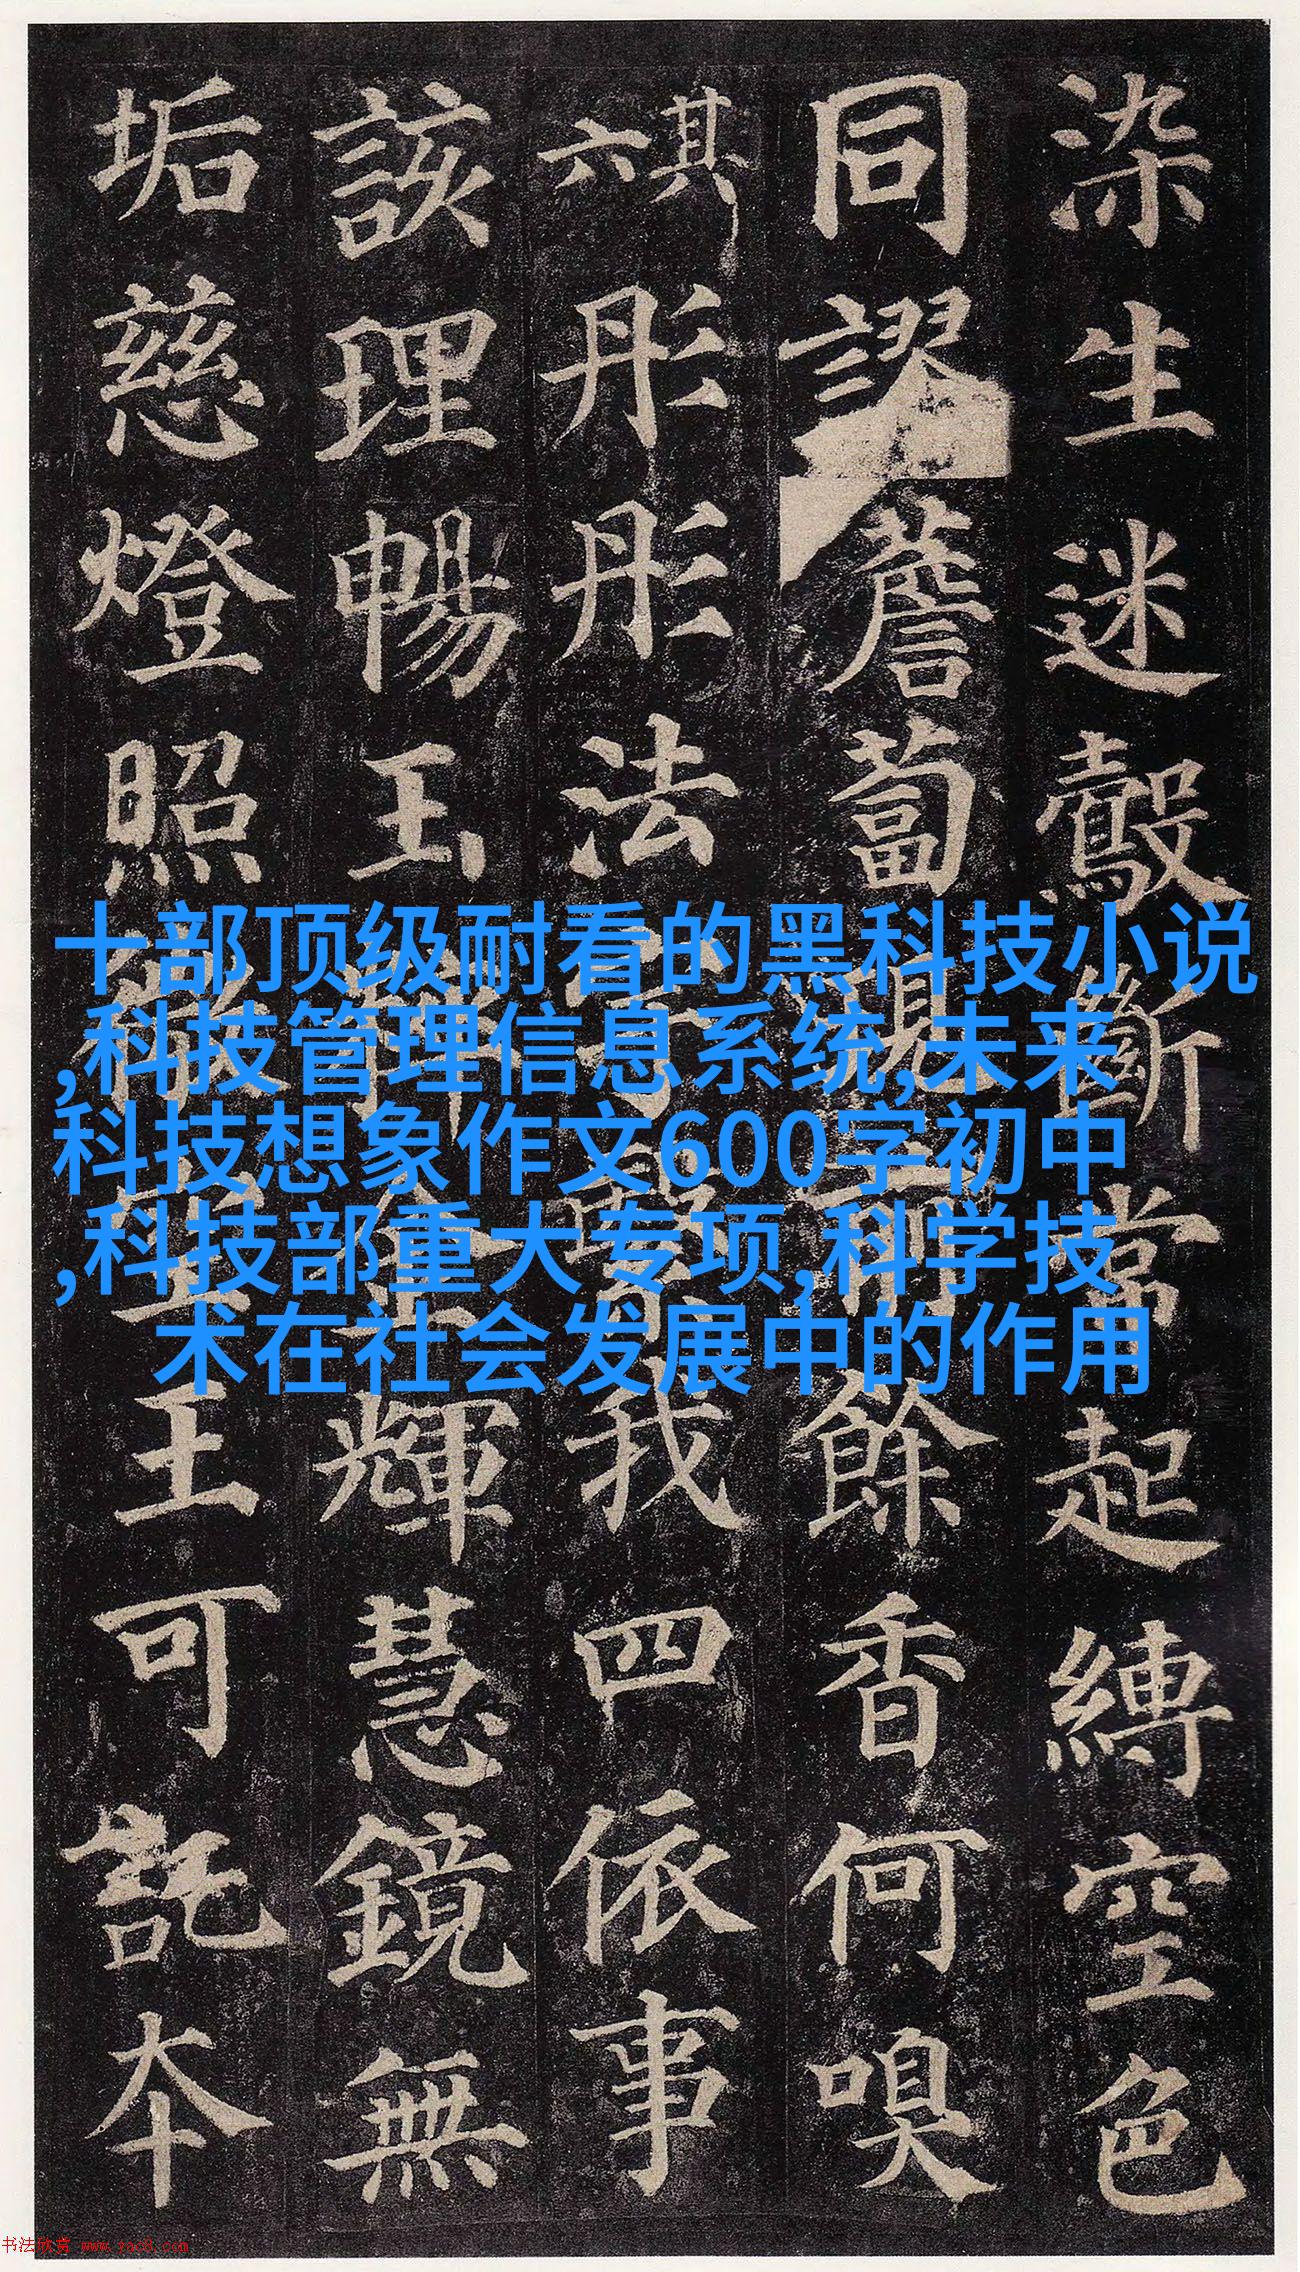 染生迷鷇斷常起縛空色
同謬薝蔔現前餘香何嗅
其六彤彤法宇繄我四依事
該理暢玉粹金輝慧鏡無
垢慈燈照微空王可託本
十部顶级耐看的黑科技小说
,科技管理信息系统,未来
科技想象作文600字初中
,科技部重大专项,科学技
术在社会发展中的作用
书法欣赏 www.yac8.com